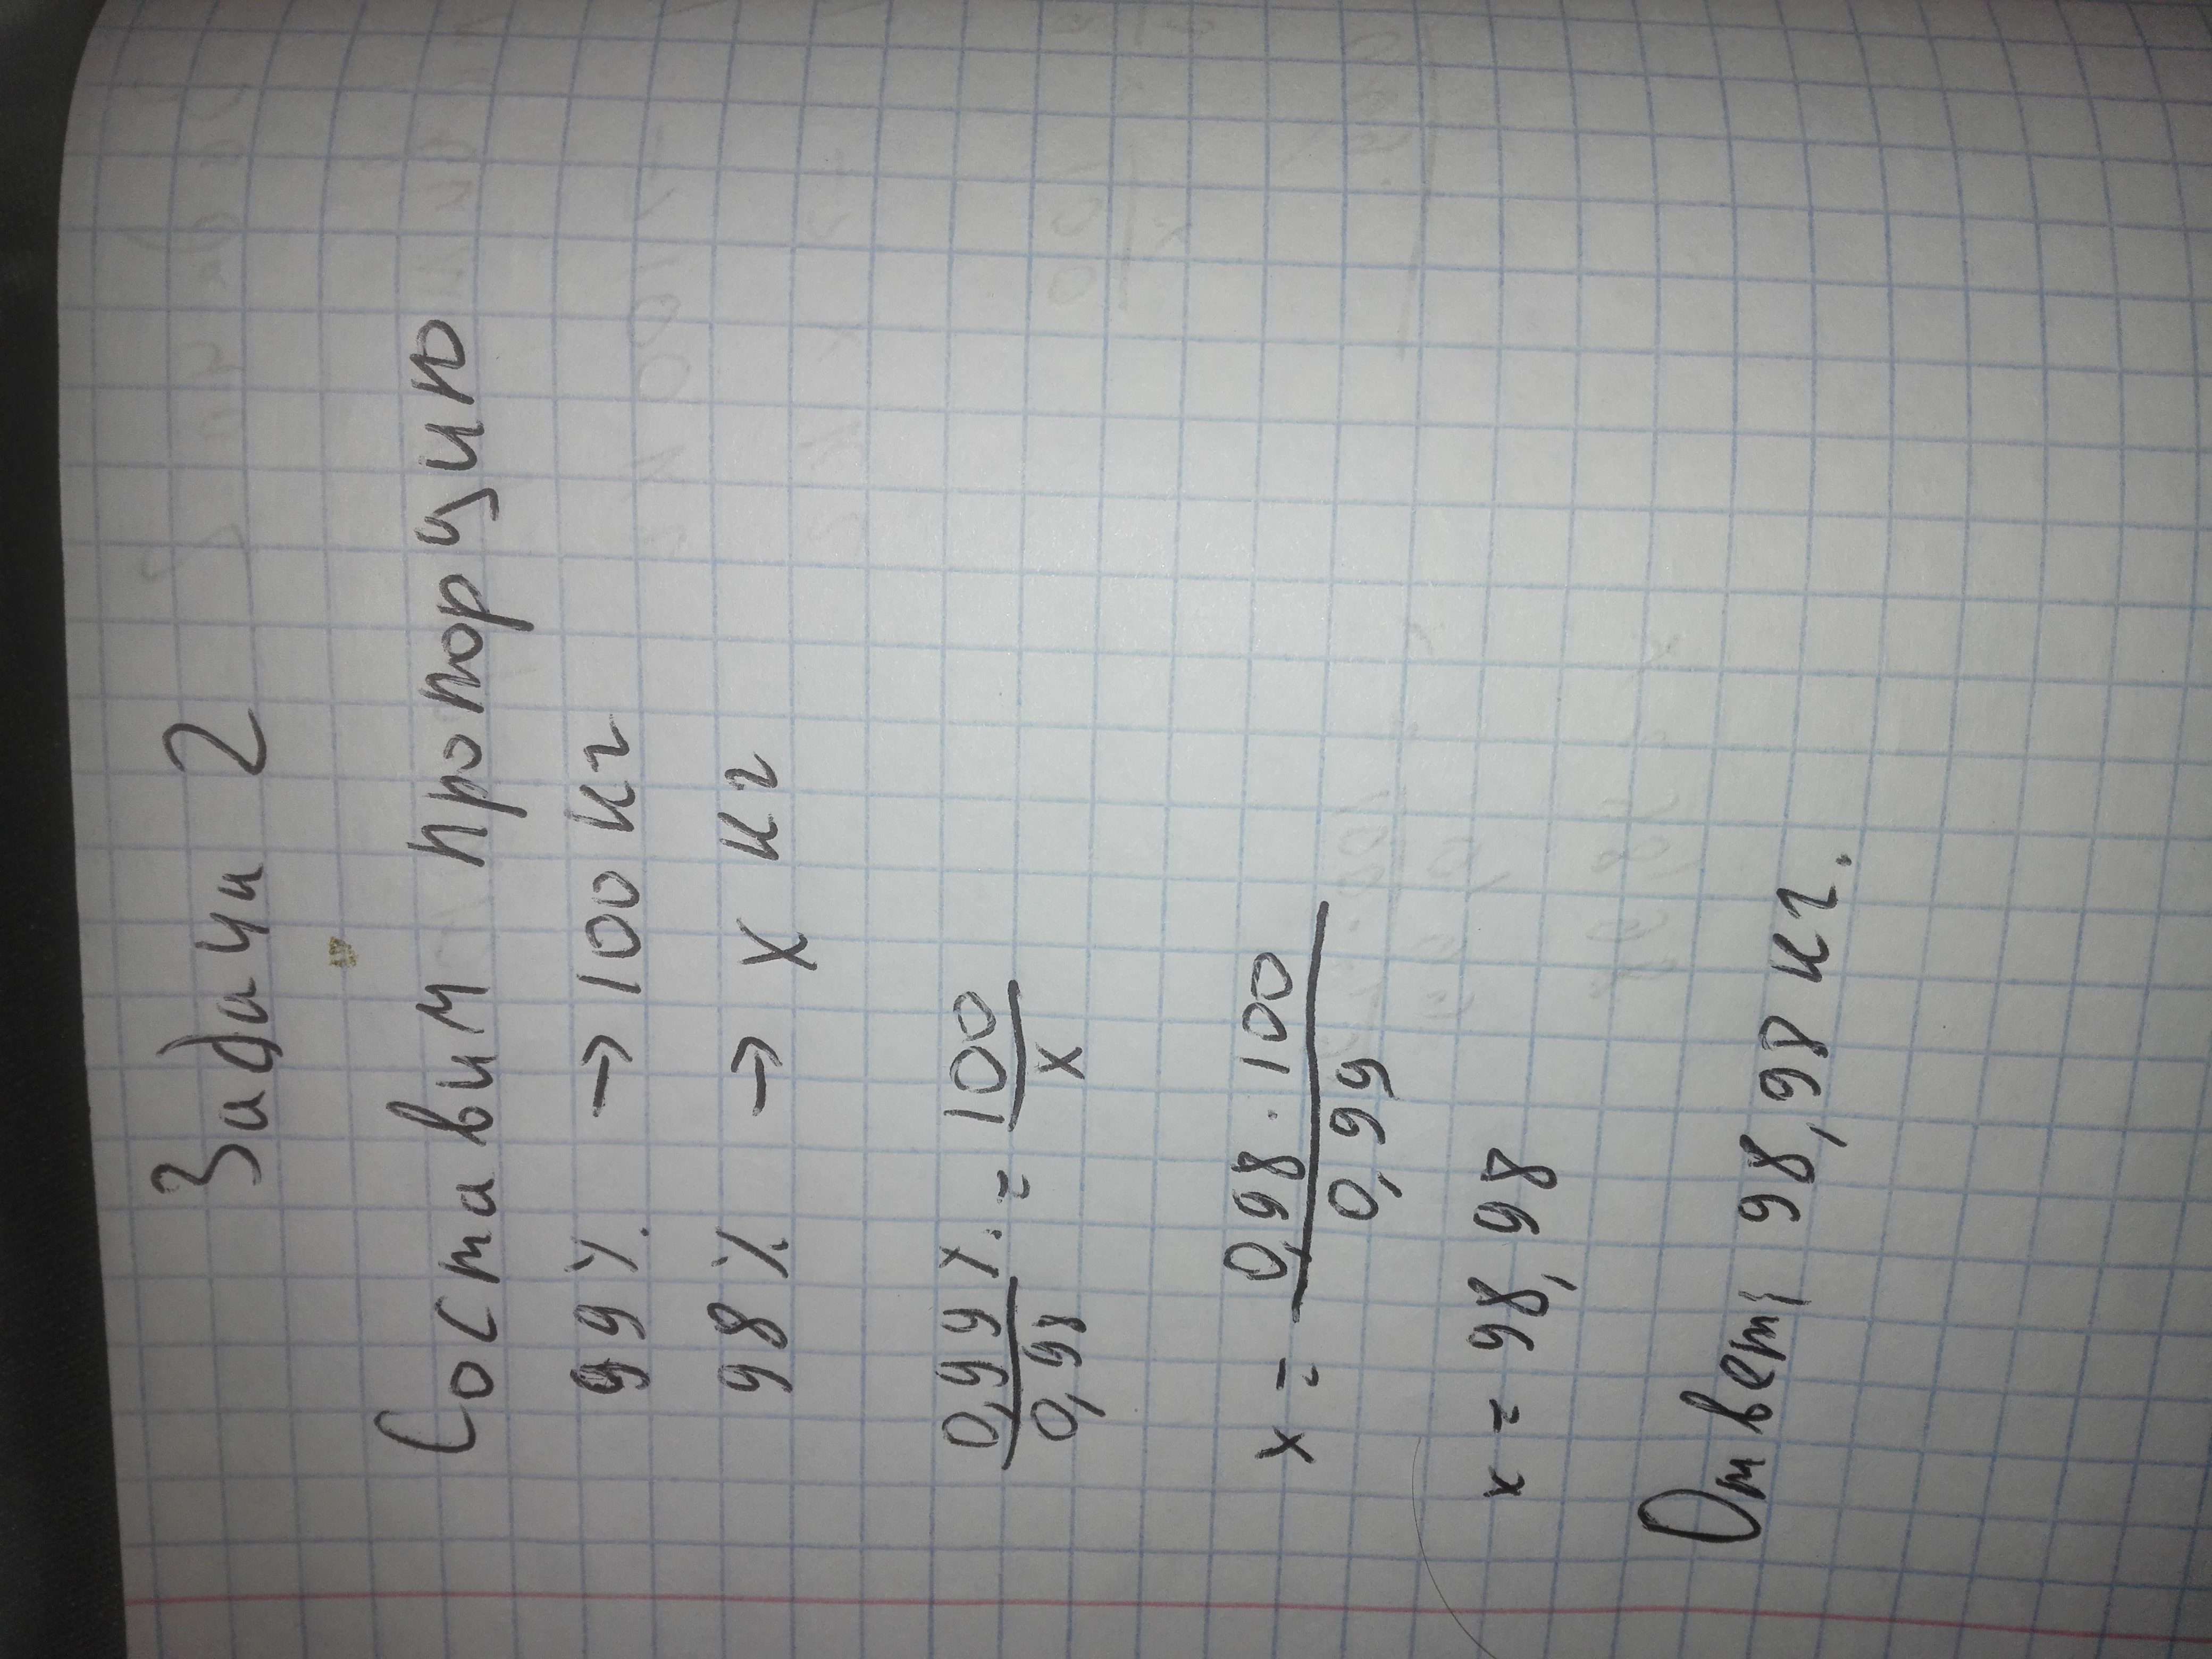 Задача 2
Составим пропорцию
99% → 100 кг
98% → x кг
0,99% = 100
0,98 x
x = 0,98 · 100
0,99
x = 98,98
Ответ: 98,98 кг.